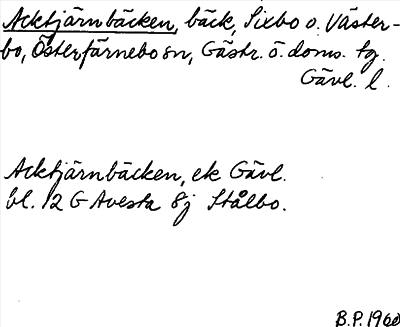 Acktjärnbäcken, bäck, Sixbo o. Väster-
bo, Österfärnebo sn, Gästr. ö. doms. tg.
Gävl. l.
Acktjärnbäcken, ek Gävl.
bl. 12 G Avesta 8j Stålbo.
B.P. 1960